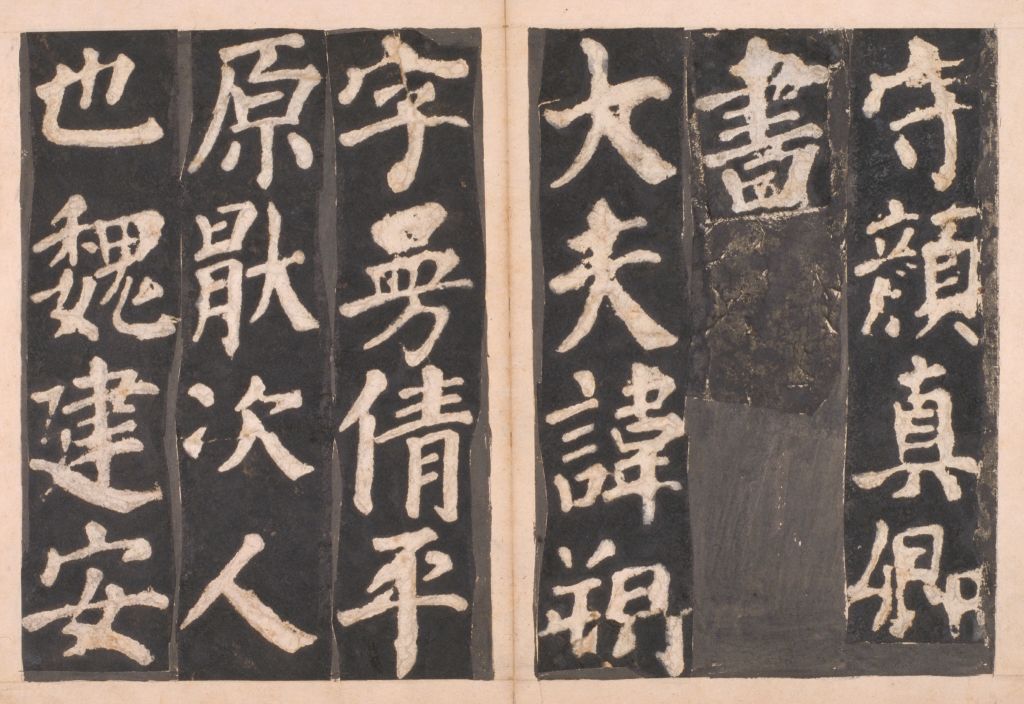 守顏真卿
書
大夫諱朔
字曼倩平
原厭次人
也魏建安